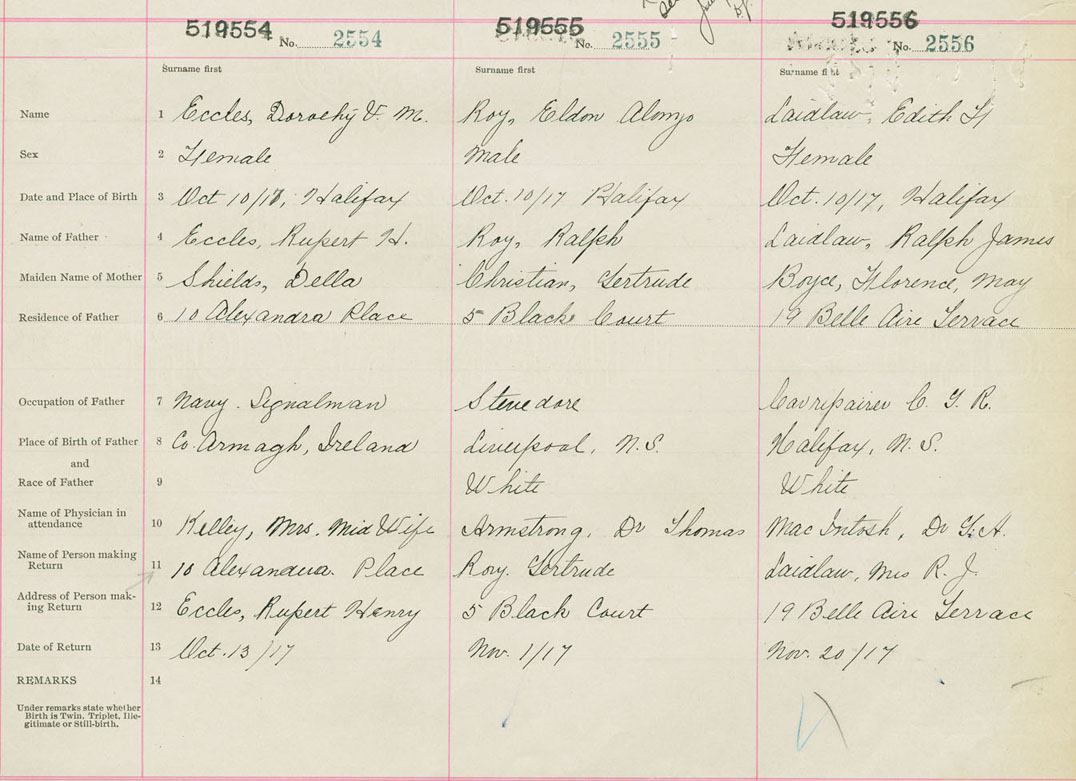 519554 519555 519556
No. 2554 No. 2555 No. 2556
Surname first Surname first Surname first
Name 1 Eccles, Dorothy V. M. Roy, Eldon Alonzo Laidlaw, Edith H
Sex 2 Female Male Female
Date and Place of Birth 3 Oct 10/17, Halifax Oct. 10/17 Halifax Oct. 10/17, Halifax
Name of Father 4 Eccles, Rupert H. Roy, Ralph Laidlaw, Ralph James
Maiden Name of Mother 5 Shields, Della Christian, Gertrude Boyce, Florence, May
Residence of Father 6 10 Alexandra Place 5 Black Court 19 Belle Aire Terrace
Occupation of Father 7 Navy. Signalman Stevedore Carripairer C. G. R.
Place of Birth of Father 8 Co. Armagh, Ireland Liverpool, N.S. Halifax, N.S.
and
Race of Father 9 White White
Name of Physician in
attendance 10 Kelley, Mrs. Mid Wife Armstrong, Dr Thomas MacIntosh, Dr G.A.
Name of Person making
Return 11 10 Alexandra Place Roy. Gertrude Laidlaw, Mrs R. J.
Address of Person mak-
ing Return 12 Eccles, Rupert Henry 5 Black Court 19 Belle Aire Terrace
Date of Return 13 Oct. 13/17 Nov. 1/17 Nov. 20/17
REMARKS 14
Under remarks state whether
Birth is Twin, Triplet, Ille-
gitimate or Still-birth.